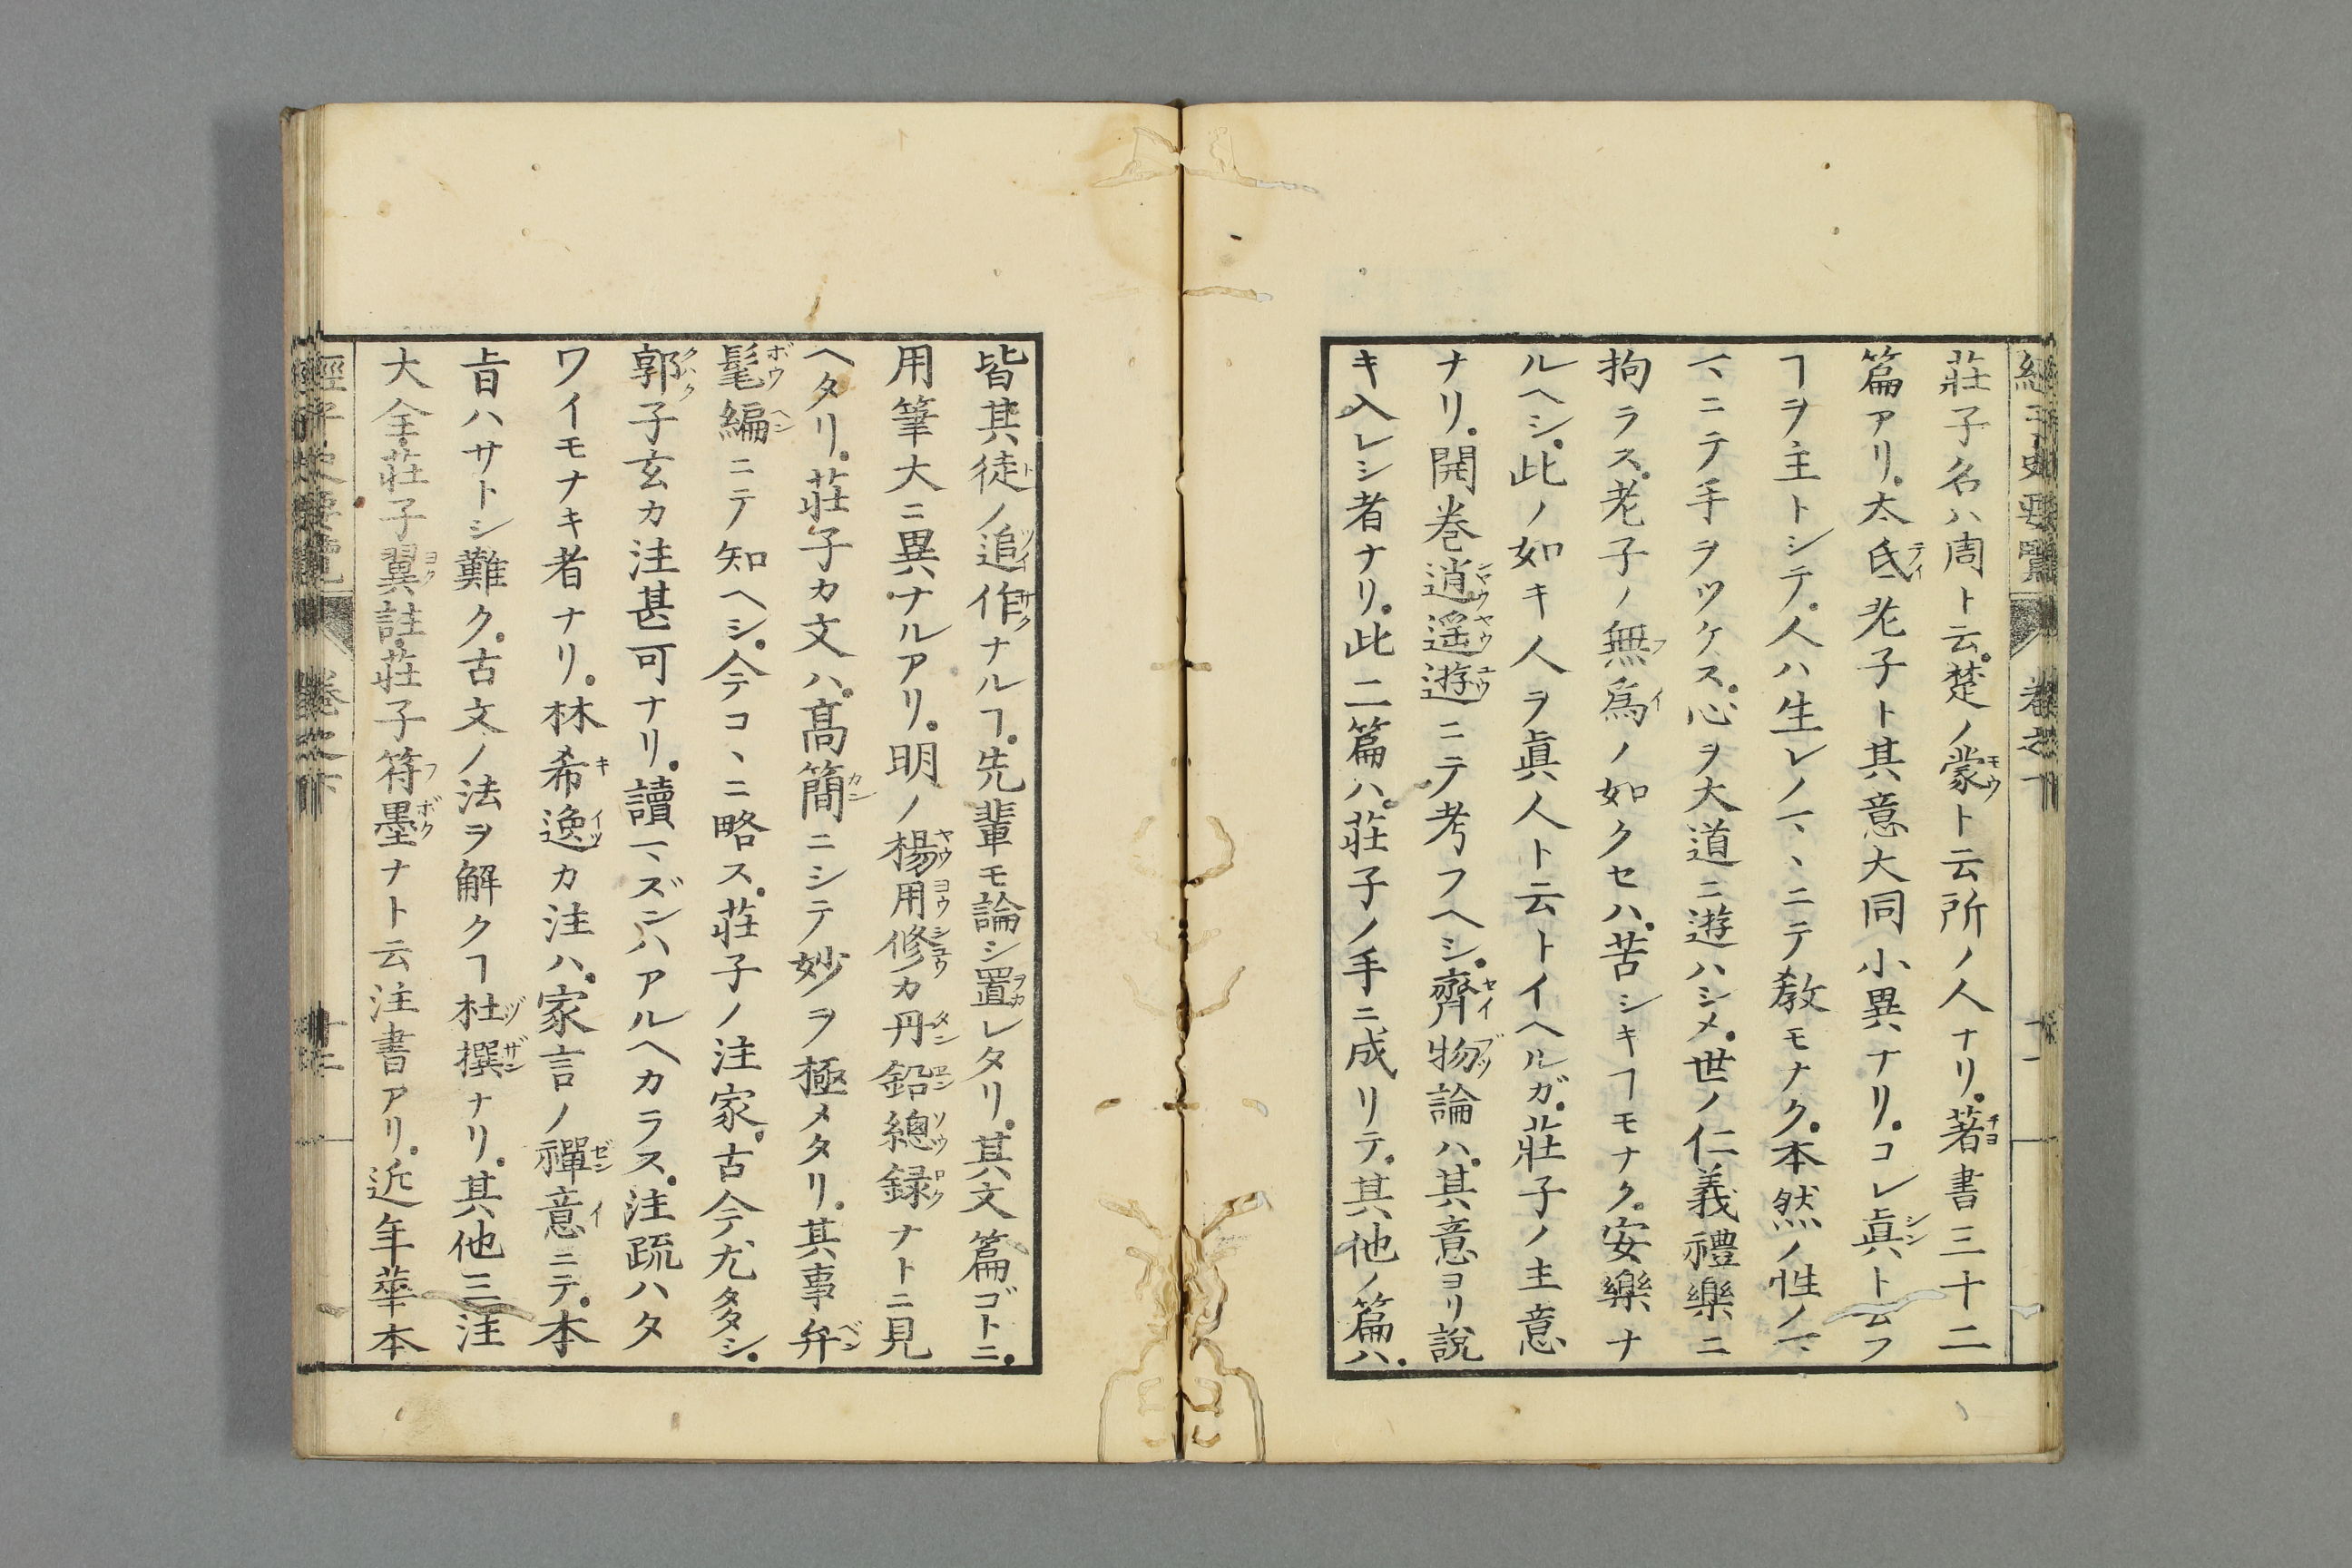 莊子名ハ周ト云。楚ノ蒙ト云所ノ人ナリ。著書三十二
篇アリ。太氐老子ト其意大同小異ナリ。コレ眞ト云フ
ヿヲ主トシテ。人ハ生レノマヽニテ教モナク。本然ノ性ノマ
マニテ手ヲツケス。心ヲ大道ニ遊ハシメ。世ノ仁義禮樂ニ
拘ラス。老子ノ無爲ノ如クセハ。苦シキヿモナク。安樂ナ
ルヘシ。此ノ如キ人ヲ眞人ト云トイヘルガ。莊子ノ主意
ナリ。開巻逍遥遊ニテ考フヘシ。齊物論ハ。其意ヨリ説
キ入レシ者ナリ。此二篇ハ。莊子ノ手ニ成リテ。其他ノ篇ハ。
皆其徒ノ追作ナルヿ。先輩モ論シ置レタリ。其文篇ゴトニ。
用筆大ニ異ナルアリ。明ノ楊用修カ丹鉛總録ナトニ見
ヘタリ。莊子カ文ハ。高簡ニシテ妙ヲ極メタリ。其事弁
髦編ニテ知ヘシ。今コヽニ略ス。莊子ノ注家。古今尤多シ。
郭子玄カ注甚可ナリ。讀マズンハアルヘカラス。注疏ハタ
ワイモナキ者ナリ。林希逸カ注ハ。家言ノ禪意ニテ。本
㫖ハサトシ難ク。古文ノ法ヲ解クヿ杜撰ナリ。其他三注
大全。莊子翼註。莊子符墨ナト云注書アリ。近年華本
經子史要覽
卷之下